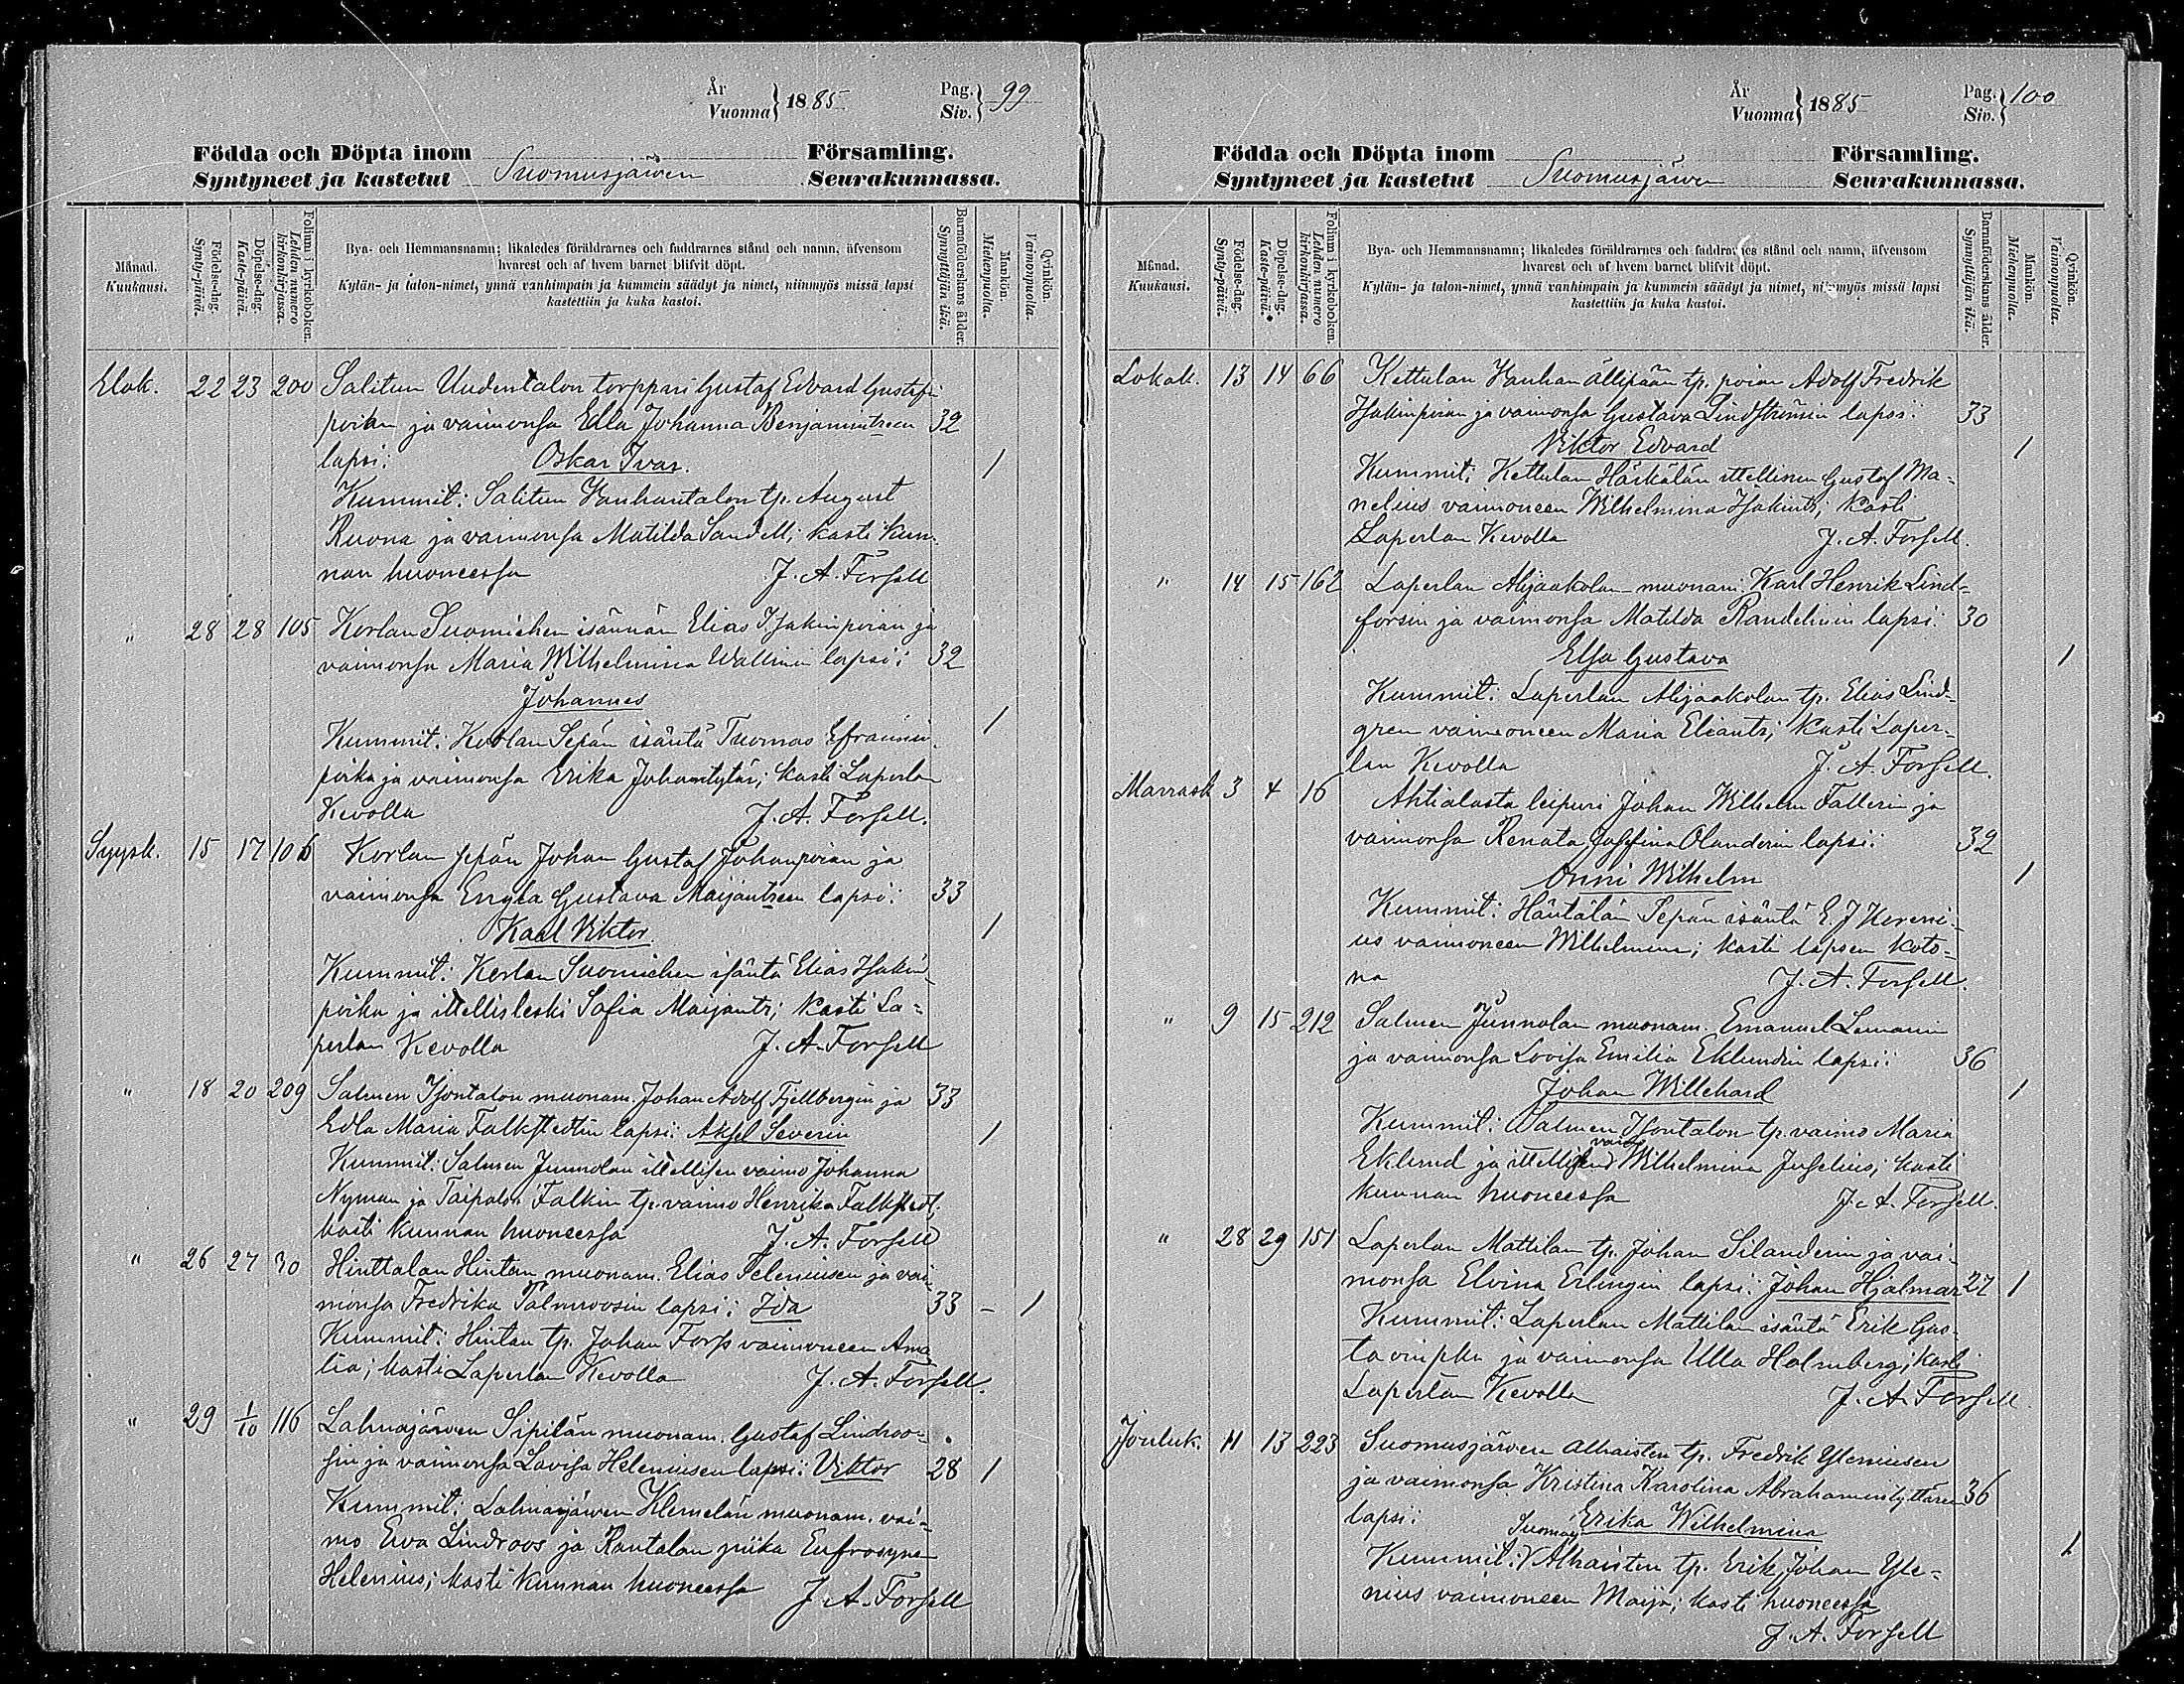 År
Vuonna } 1885
Pag.
Siv. } 99
Födda och Döpta inom Församling.
Syntyneet ja kastetut Suomusjärven Seurakunnassa.
Månad.
Kuukausi.
Födelse-dag.
Synty-päivä.
Döpelse-dag.
Kaste-päivä.
Folium i kyrkoboken.
Lehden numero kirkonkirjassa.
Bya- och Hemmansnamn; likaledes föräldrarnes och faddrarnes stånd och namn, äfvensom
hvarest och af hvem barnet blifvit döpt.
Kylän- ja talon-nimet, ynnä vanhimpain ja kummein säädyt ja nimet, niinmyös missä lapsi
kastettiin ja kuka kastoi.
Barnaföderskans ålder.
Synnyttäjän ikä.
Mankön.
Miehenpuolla.
Qvinkön.
Vaimonpuolla.
Elok. 22 23 200 Salitun Uudentalon torppari Gustaf Edvard Gustafin
poikan ja vaimonsa Edla Johanna Benjamintreen 32
lapsi: Oskar Ivar. 1
Kummit: Salitun Vanhantalon tp. August
Ruona ja vaimonsa Matilda Sandell; kasti kun-
nan huoneessa J. A. Forsell
" 28 28 105 Korlan Suomiehen isännän Elias Isakinpoian ja
vaimonsa Maria Wilhelmina Wallinin lapsi: 32
Johannes 1
Kummit: Korlan Sepän isäntä Tuomas Efraimin-
poika ja vaimonsa Erika Johantytär; kasti Laperlan
Kevolla J. A. Forsell.
Syysk. 15 17 106 Korlan sepän Johan Gustaf Johanpoian ja
vaimonsa Engla Gustava Maijantreen lapsi: 33
Kaarl Viktor 1
Kummit: Korlan Suomiehen isäntä Elias Isakin-
poika ja itellisleski Sofia Maijantr; kasti La-
perlan Kevolla J. A. Forsell
" 18 20 209 Salmen Isontalon muonam. Johan Adolf Fjellbergin ja 33
Edla Maria Falkstedtin lapsi: Aksel Severin 1
Kummit: Salmen Junnolan itellisen vaimo Johanna
Nyman ja Taipalon Falkin tp. vaimo Henrika Falkstedt;
kasti kunnan huoneessa J. A. Forsell
" 26 27 30 Hinttalan Hintan muonam. Elias Seleniusen ja vai-
monsa Fredrika Palmroosin lapsi: Ida 33 – 1
Kummit: Hintan tp. Johan Forss vaimoneen Ama-
lia; kasti Laperlan Kevolla J. A. Forsell.
" 29 1/10 116 Lahnajärven Sipilän muonam. Gustaf Lindroo-
sin ja vaimonsa Lovisa Heleniusen lapsi: Viktor 28 1
Kummit: Lahnajärven Klemelän muonam. vai-
mo Eva Lindroos ja Rantalan piika Eufrosyne
Helenius; kasti kunnan huoneessa J. A. Forsell
År
Vuonna } 1885
Pag.
Siv. } 100
Födda och Döpta inom Församling.
Syntyneet ja kastetut Suomusjärven Seurakunnassa.
Månad.
Kuukausi.
Födelse-dag.
Synty-päivä.
Döpelse-dag.
Kaste-päivä.
Folium i kyrkoboken.
Lehden numero kirkonkirjassa.
Bya- och Hemmansnamn; likaledes föräldrarnes och faddrarnes stånd och namn, äfvensom
hvarest och af hvem barnet blifvit döpt.
Kylän- ja talon-nimet, ynnä vanhimpain ja kummein säädyt ja nimet, niinmyös missä lapsi
kastettiin ja kuka kastoi.
Barnaföderskans ålder.
Synnyttäjän ikä.
Mankön.
Miehenpuolla.
Qvinkön.
Vaimonpuolla.
Lokak. 13 14 66 Kettulan Vanhan ällipään tp. poian Adolf Fredrik
Isakinpoian ja vaimonsa Gustava Lindströmin lapsi: 33
Viktor Edvard 1
Kummit: Kettulan Härkälän itellinen Gustaf Ma-
nelius vaimoneen Wilhelmina Isakintr; kasti
Laperlan Kevolla J. A. Forsell.
" 14 15 162 Laperlan Alijaakolan muonam: Karl Henrik Lind-
forsin ja vaimonsa Matilda Randelinin lapsi: 30
Elsa Gustava 1
Kummit: Laperlan Alijaakolan tp. Elias Lind-
gren vaimoneen Maria Eliantr; kasti Laper-
lan Kevolla J. A. Forsell.
Marrask 3 4 16 Ahtialasta leipuri Johan Wilhelm Fallerin ja
vaimonsa Renata Josefina Olanderin lapsi: 32
Onni Wilhelm 1
Kummit: Häntälän Sepän isäntä E. J Kereni-
us vaimoneen Wilhelmina; kasti lapsen koto-
na J. A. Forsell.
" 9 15 212 Salmen Junnolan muonam. Emanuel Lemanin
ja vaimonsa Lovisa Emilia Eklundin lapsi: 36
Johan Willehard 1
Kummit: Salmen Isontalon tp. vaimo Maria
Eklund ja itellisen vaimo Wilhelmina Juselius; kasti
kunnan huoneessa J. A. Forsell.
" 28 29 151 Laperlan Mattilan tp. Johan Silanderin ja vai-
monsa Elvina Erlingin lapsi: Johan Hjalmar 27 1
Kummit: Laperlan Mattilan isäntä Erik Gus-
tavinpka ja vaimonsa Ulla Holmberg; kasti
Laperlan Kevolla J. A. Forsell.
Jouluk. 11 13 223 Suomusjärven Alhaisten tp. Fredrik Yleniusen
ja vaimonsa Kristina Karolina Abrahamintyttären 36
lapsi: Erika Wilhelmina 1
Kummit: Suomusj Alhaisten tp. Erik Johan Yle-
nius vaimoneen Maija; kasti huoneessa
J. A. Forsell